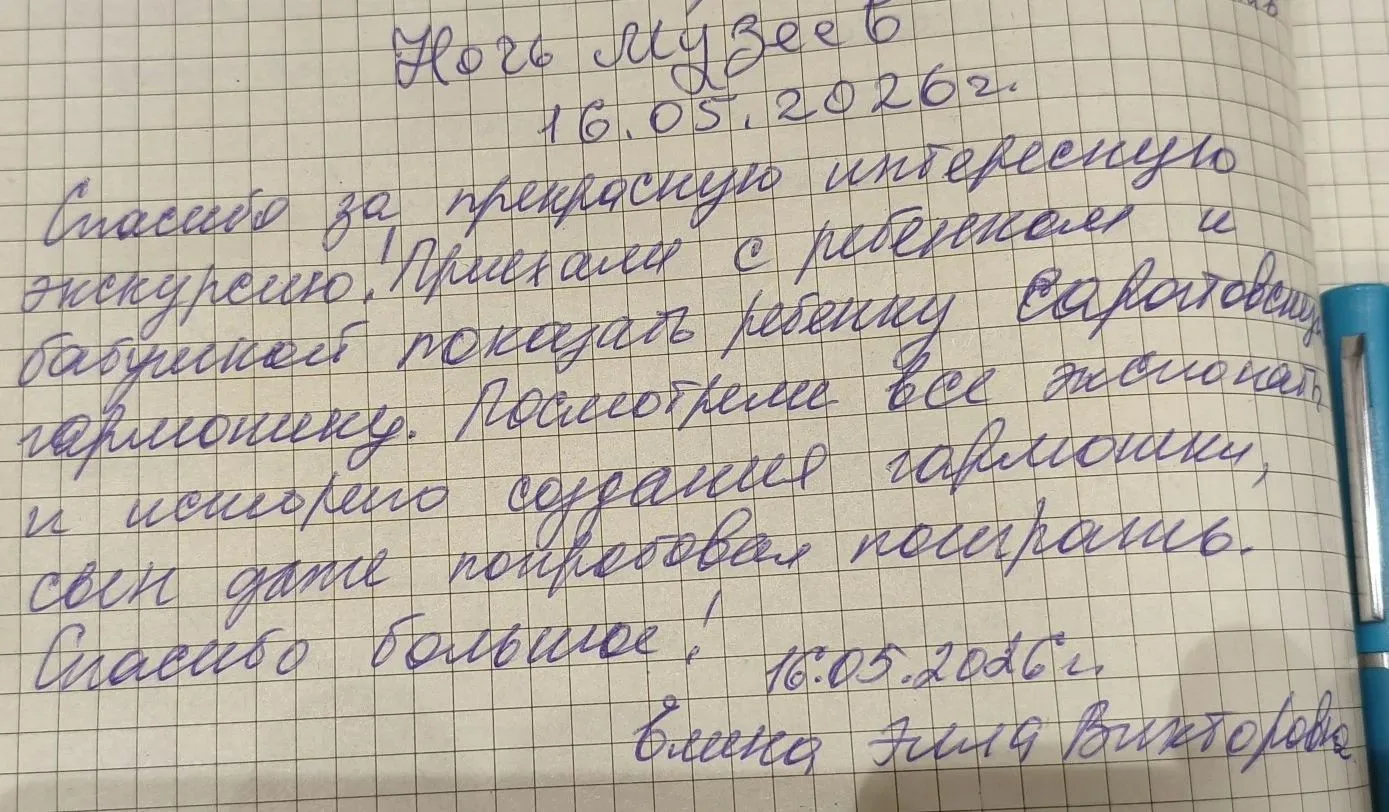 Ночь музеев
16.05.2026г.
Спасибо за прекрасную интересную
экскурсию! Приехали с ребенком и
бабушкой показать ребенку Саратовскую
гармонику. Посмотрели все экспонаты
и историю создания гармошки,
сын даже попробовал поиграть.
Спасибо большое!
16.05.2026г.
Элла Викторовна